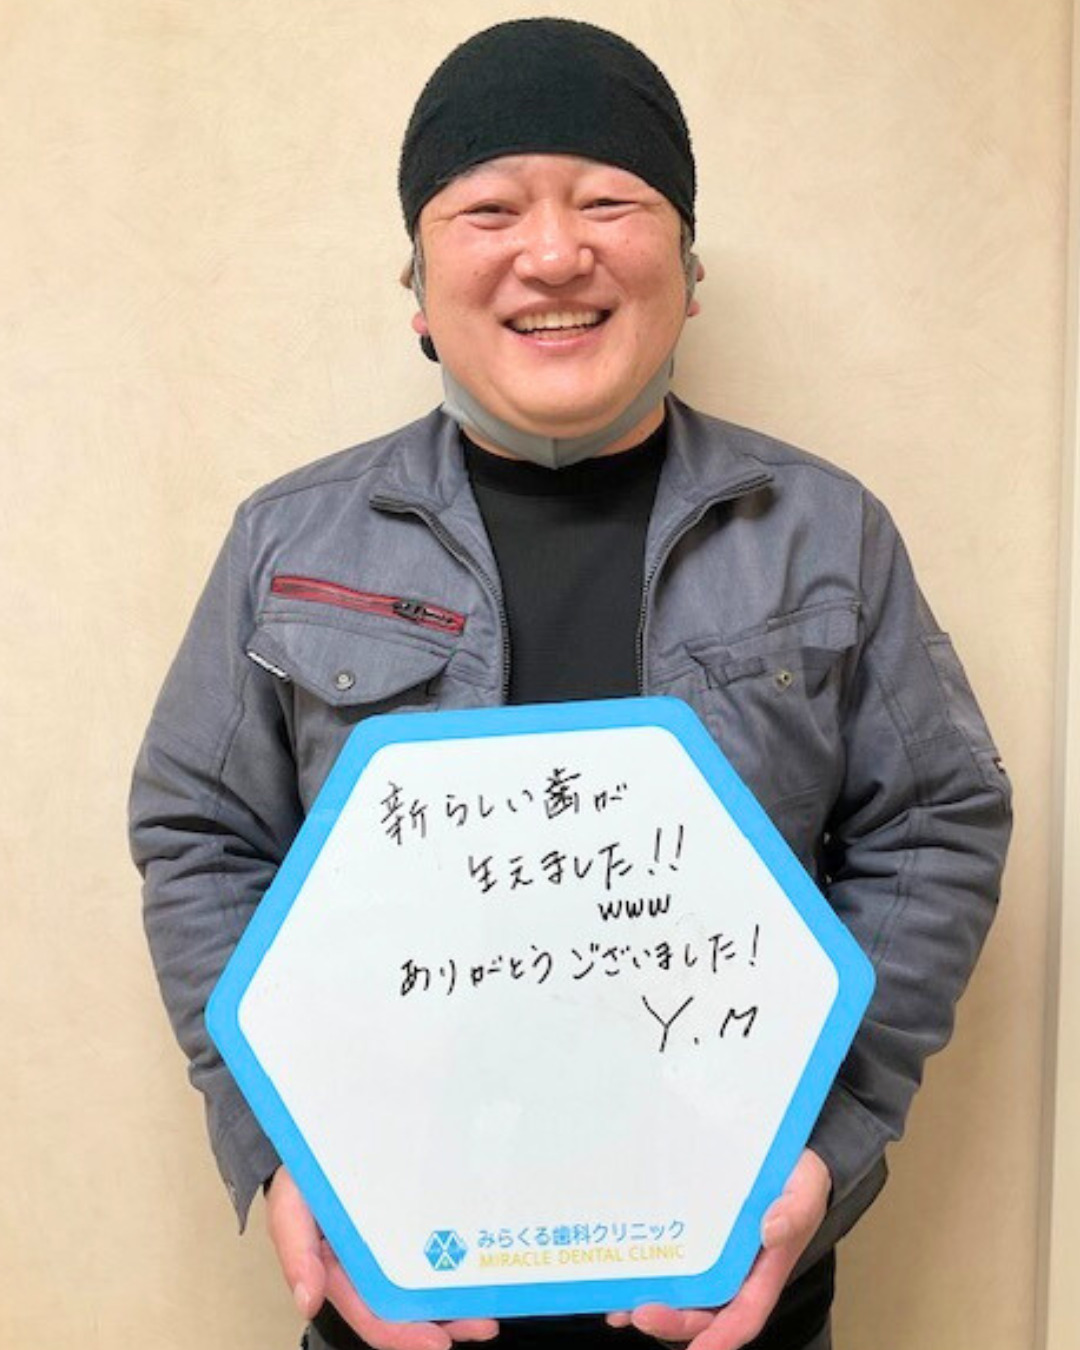 新らしい歯が
生えました!!
www
ありがとうございました!
Y.M
みらくる歯科クリニック
MIRACLE DENTAL CLINIC